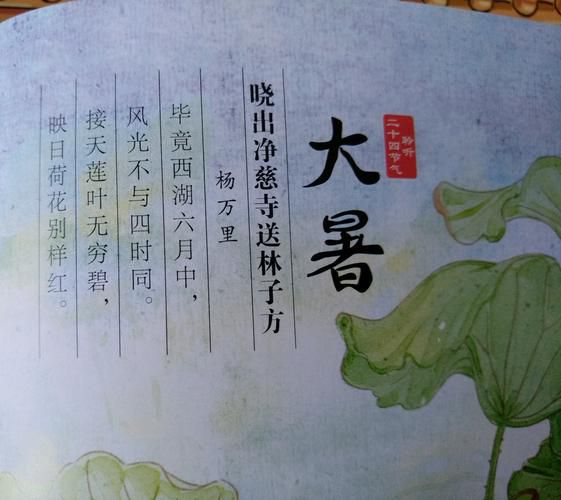 聆听
二十四节气
大暑
晓出净慈寺送林子方
杨万里
毕竟西湖六月中，
风光不与四时同。
接天莲叶无穷碧，
映日荷花别样红。